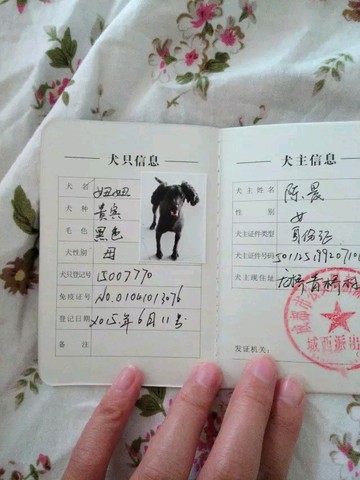 犬只信息
犬 名 妞妞
犬 种 贵宾
毛 色 黑色
犬性别 母
犬只登记号 J5007770
免疫证号 No.01041013076
登记日期 2015年6月11号
备 注
犬主信息
犬 主 姓 名 陈晨
性 别 女
犬主证件类型 身份证
犬主证件号码
犬主现住址
发证机关：